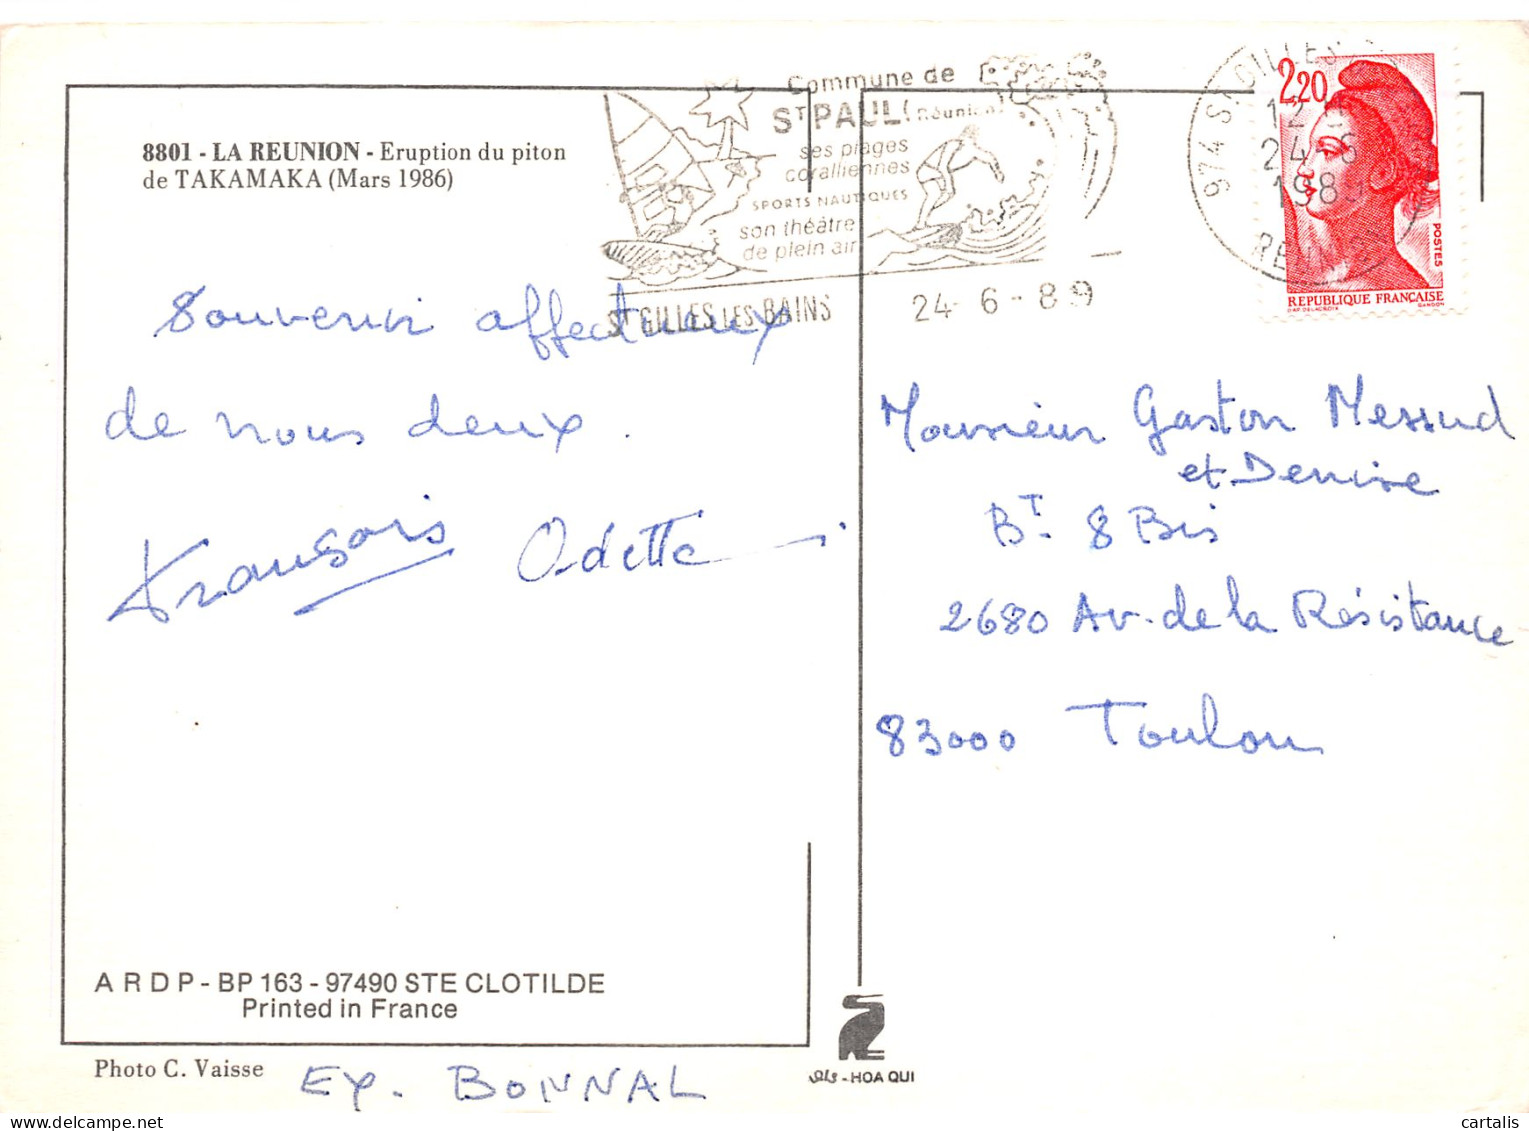 8801 - LA REUNION - Eruption du piton
de TAKAMAKA (Mars 1986)
Commune de
ST PAUL (Réunion)
ses plages
coralliennes
SPORTS NAUTIQUES
son théâtre
de plein air
ST GILLES LES BAINS
24 - 6 - 89
974 ST GILLES
24-6
1989
2,20
POSTES
REPUBLIQUE FRANÇAISE
D'AP. DELACROIX
GANDON
Souvenir affectueux
de nous deux.
François Odette
Monsieur Gaston Messud
et Denise
BT. 8 Bis
2680 Av. de la Résistance
83000 Toulon
A R D P - BP 163 - 97490 STE CLOTILDE
Printed in France
Photo C. Vaisse
Ex. BONNAL
- HOA QUI
cartalis